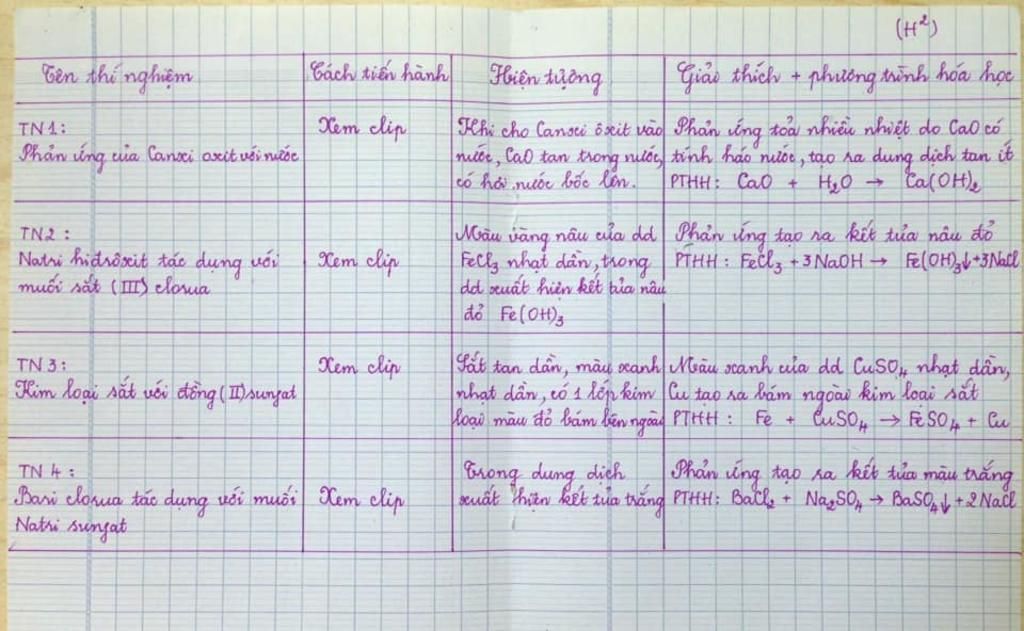 (H²)
Tên thí nghiệm
Cách tiến hành
Hiện tượng
Giải thích + phương trình hóa học
TN1:
Phản ứng của Canxi oxit với nước
Xem clip
Khi cho Canxi ôxit vào
nước, CaO tan trong nước,
có hơi nước bốc lên.
Phản ứng toả nhiều nhiệt do CaO có
tính háo nước, tạo ra dung dịch tan ít
PTHH: CaO + H₂O → Ca(OH)₂
TN2:
Natri hiđrôxit tác dụng với
muối sắt (III) clorua
Xem clip
Màu vàng nâu của dd
FeCl₃ nhạt dần, trong
dd xuất hiện kết tủa nâu
đỏ Fe(OH)₃
Phản ứng tạo ra kết tủa nâu đỏ
PTHH: FeCl₃ + 3NaOH → Fe(OH)₃↓ + 3NaCl
TN3:
Kim loại sắt với đồng (II) sunfat
Xem clip
Sắt tan dần, màu xanh
nhạt dần, có 1 lớp kim
loại màu đỏ bám bên ngoài
Màu xanh của dd CuSO₄ nhạt dần,
Cu tạo ra bám ngoài kim loại sắt
PTHH: Fe + CuSO₄ → FeSO₄ + Cu
TN4:
Bari clorua tác dụng với muối
Natri sunfat
Xem clip
Trong dung dịch
xuất hiện kết tủa trắng
Phản ứng tạo ra kết tủa màu trắng
PTHH: BaCl₂ + Na₂SO₄ → BaSO₄↓ + 2NaCl